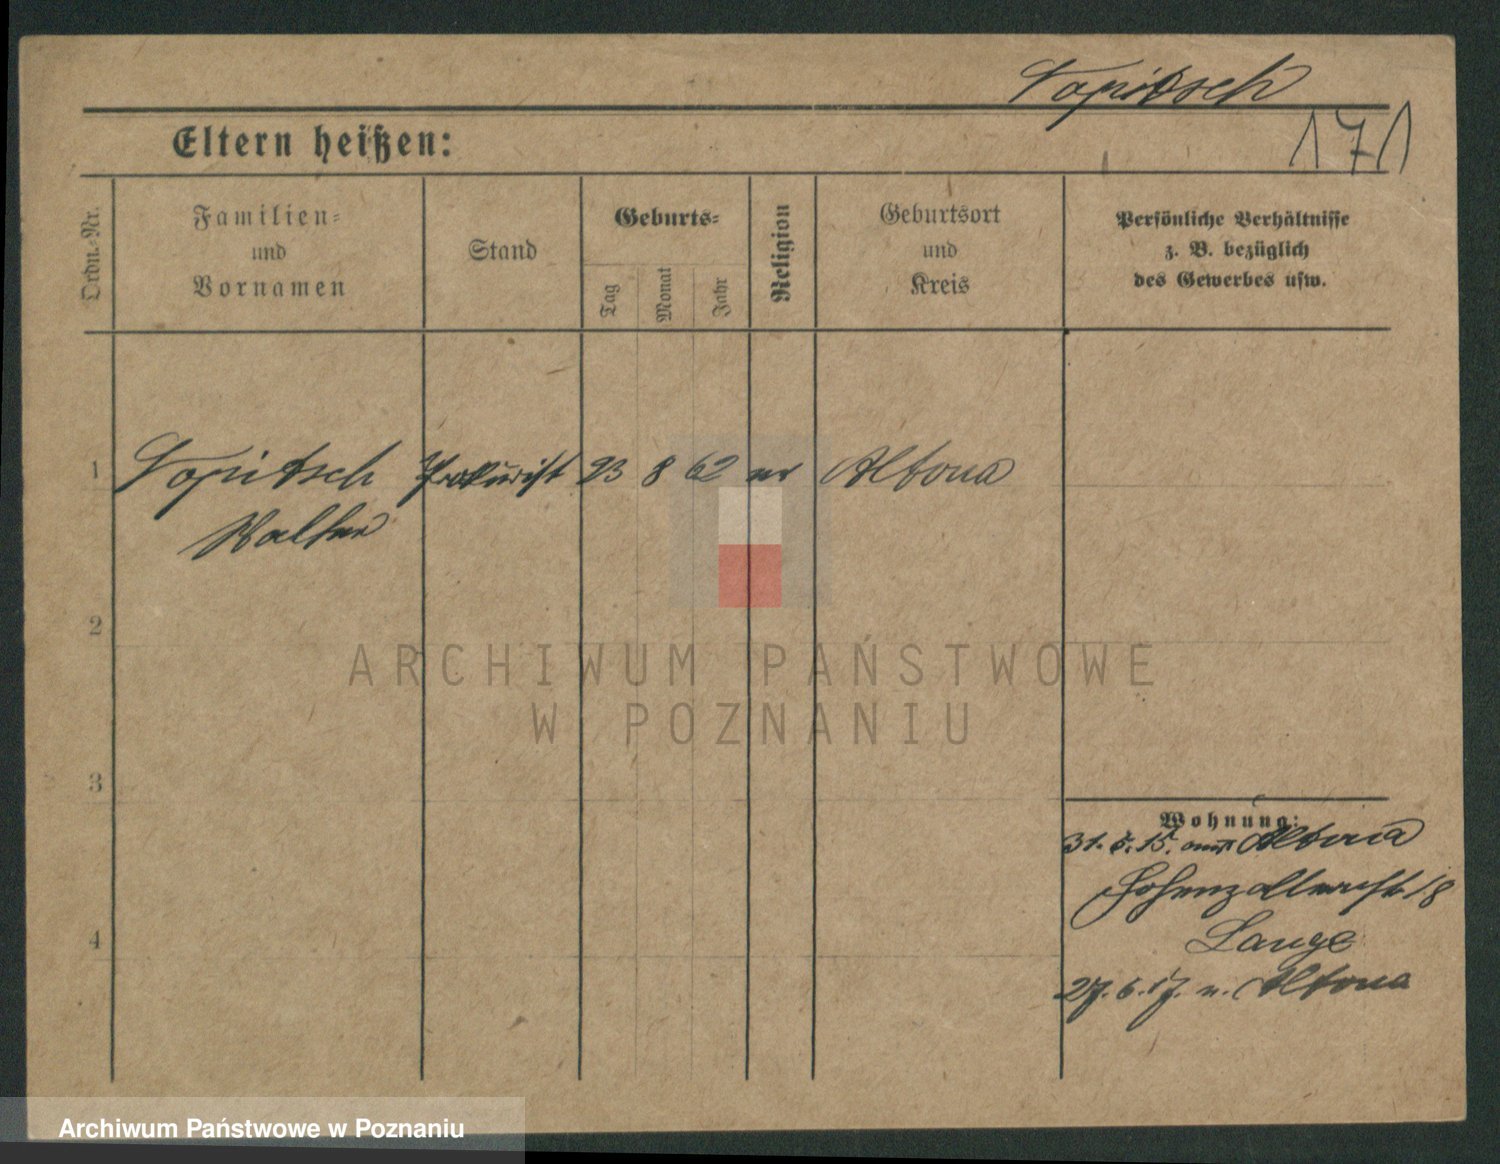 Vopitsch
171
Eltern heißen:
Ordn.-Nr.
Familien-
und
Vornamen
Stand
Geburts-
Tag
Monat
Jahr
Religion
Geburtsort
und
Kreis
Persönliche Verhältnisse
z. B. bezüglich
des Gewerbes usw.
1 Vopitsch Prokurist 23 8 62 Altona
Walter
2
3
4
Wohnung:
31. 5. 15. aus Altona
Hohenzollernstr 18
Lange
27. 6. 17. n. Altona
ARCHIWUM PAŃSTWOWE
W POZNANIU
Archiwum Państwowe w Poznaniu